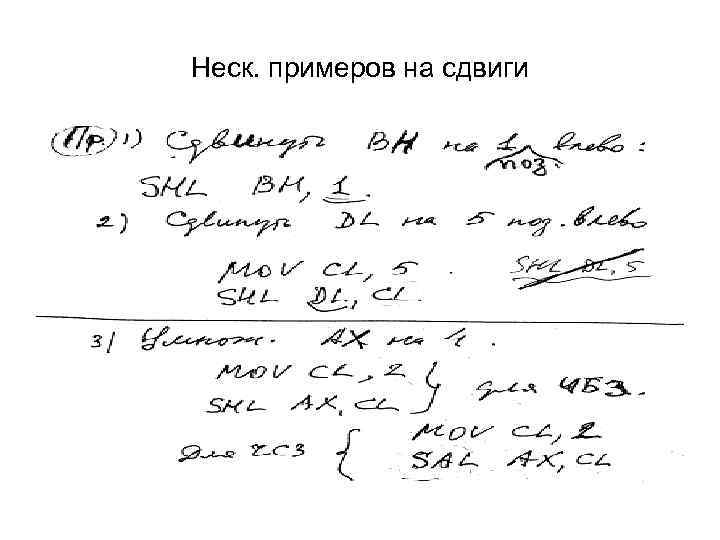 Неск. примеров на сдвиги
Пр. 1) Сдвинуть BH на 1 поз. влево:
SHL BH, 1.
2) Сдвинуть DL на 5 поз. влево
MOV CL, 5. SHL DL, 5
SHL DL, CL.
3) Умнож. AX на 4.
MOV CL, 2
SHL AX, CL } для ЧБЗ.
Для ЧСЗ { MOV CL, 2
SAL AX, CL